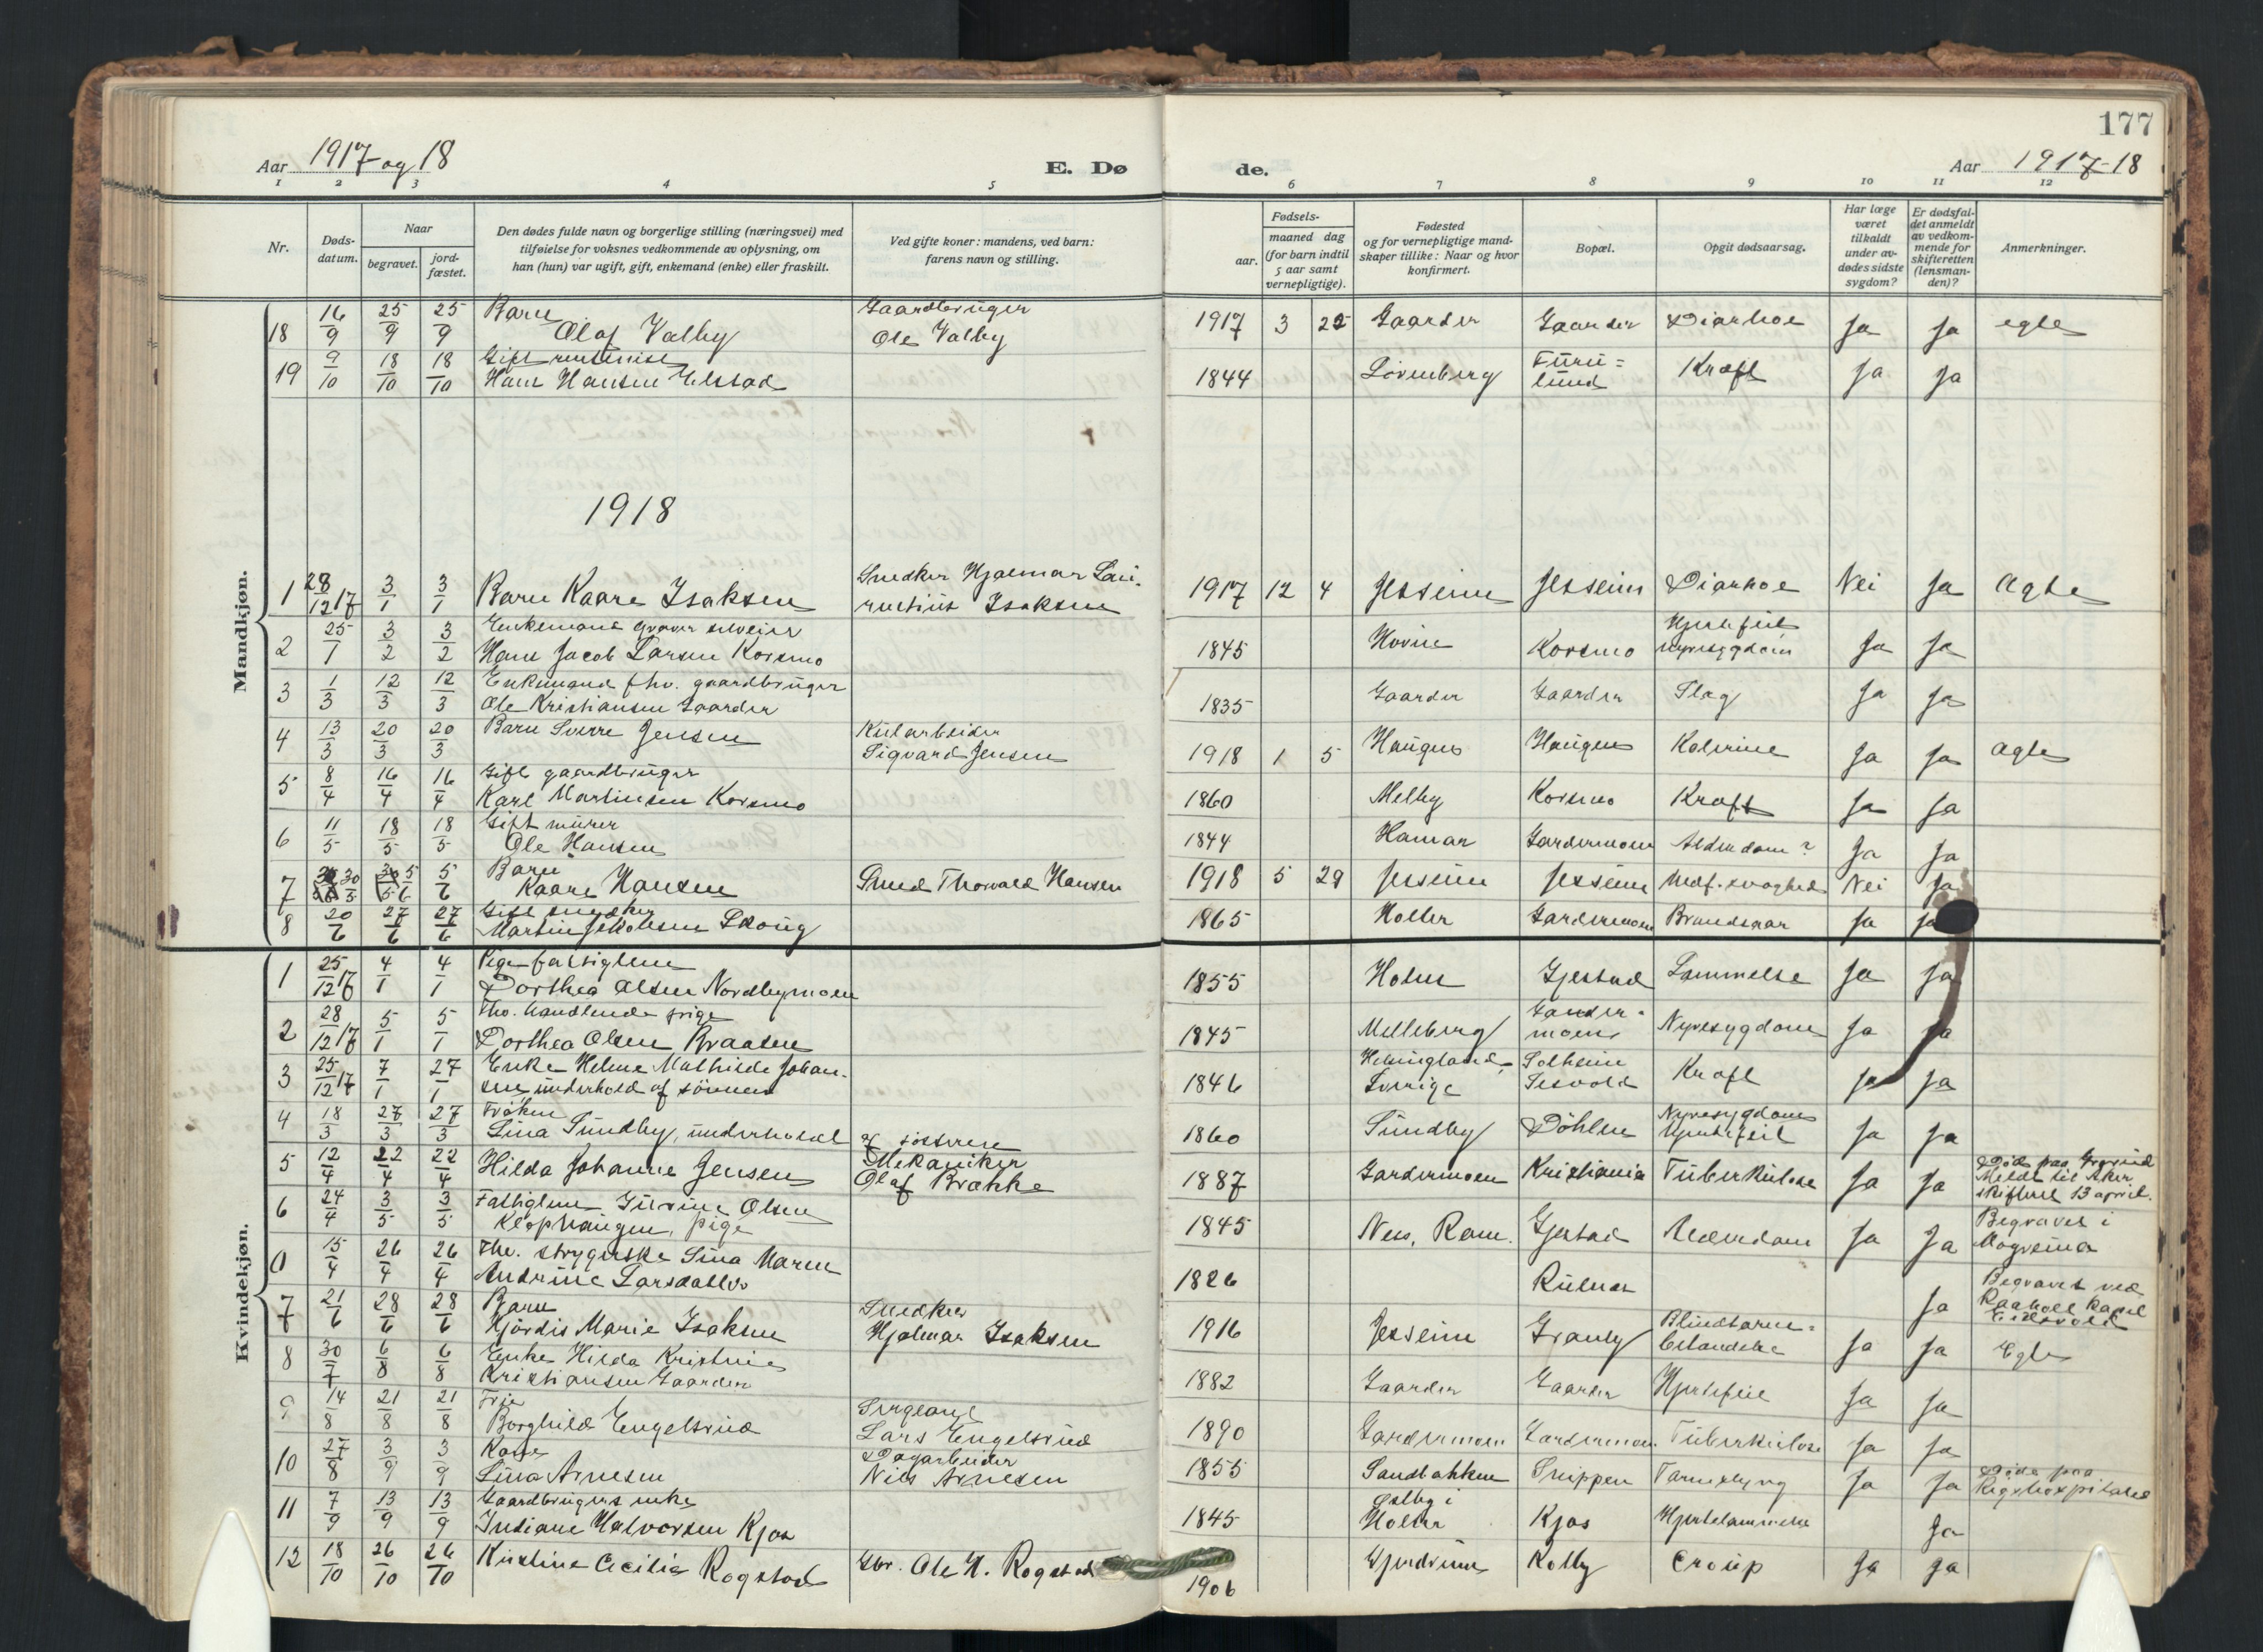 177
Aar 1917 og 18
E. Dø
de.
Aar 1917-18
1 2 3 4 5 6 7 8 9 10 11 12
Nr.
Døds-
datum.
Naar
begravet.
jord-
fæstet.
Den dødes fulde navn og borgerlige stilling (næringsvei) med
tilføielse for voksnes vedkommende av oplysning, om
han (hun) var ugift, gift, enkemand (enke) eller fraskilt.
Ved gifte koner: mandens, ved barn:
farens navn og stilling.
Fødsels-
aar.
maaned dag
(for barn indtil
5 aar samt
vernepligtige).
Fødested
og for vernepligtige mand-
skaper tillike: Naar og hvor
konfirmert.
Bopæl.
Opgit dødsaarsag.
Har læge
været
tilkaldt
under av-
dødes sidste
sygdom?
Er dødsfal-
det anmeldt
av vedkom-
mende for
skifteretten
(lensman-
den)?
Anmerkninger.
Mandkjøn.
18 16/9 25/9 25/9 Barn Olaf Valby Gaardbruger Ole Valby 1917 3 25 Gaarder Gaarder Diarhoe Ja Ja egte
19 9/10 18/10 18/10 Gift Hans Hansen Elstad 1844 Lövenberg Furu=lund Kræft Ja Ja
1918
1 28/12 17 3/1 3/1 Barn Kaare Isaksen Snedker Hjalmar Lau-rentius Isaksen 1917 12 4 Jesseim Jesseim Diarhoe Nei Ja Ægte
2 25/1 3/2 3/2 Enkemand Hans Jacob Larsen Korsmo 1845 Hovin Korsmo Hjertefeil Nyresygdom Ja Ja
3 1/3 12/3 12/3 Enkemand fhv. gaardbruger Ole Kristiansen Gaarder 1835 Gaarder Gaarder Slag Ja Ja
4 13/3 20/3 20/3 Barn Sverre Jensen Sigvard Jensen 1918 1 5 Haugen Haugen Ja Ja Ægte
5 8/4 16/4 16/4 Gift gaardbruger Karl Martinsen Korsmo 1860 Melby Korsmo Kræft Ja Ja
6 11/5 18/5 18/5 Gift murer Ole Hansen 1844 Hamar Gardermoen Alderdom? Ja Ja
7 30/5 5/6 5/6 Barn Kaare Hansen Smed Thorvald Hansen 1918 5 29 Jesseim Jesseim Medf. svaghed Nei Ja
8 20/6 27/6 27/6 Gift snedker Martin Jakobsen Skoug 1865 Holter Gardermoen Brandsaar Ja Ja
Kvindekjøn.
1 25/12 17 4/1 4/1 Pige fattiglem Dorthea Olsen Nordbymoen 1855 Holm Gjestad Lammelse Ja Ja
2 28/12 17 5/1 5/1 Fhv. handlende pige Dorthea Olsen Braaten 1845 Melleberg Garder-moen Nyresygdom Ja Ja
3 25/12 17 7/1 27/1 Enke Helene Mathilde Johan-sen underhold af sönnen 1846 Helsingland, Sverige Solheim Kræft Ja Ja
4 18/3 27/3 27/3 Fröken Lina Sundby, underholdt af søsteren 1860 Sundby Döhlen Nyresygdom Hjertefeil Ja Ja
5 12/4 22/4 22/4 Hilda Johanne Jensen Mekaniker Olaf Brække 1887 Gardermoen Kristiania Tuberkulose Ja Ja Død paa Meldt til Aker skifteret 13 april.
6 24/4 3/5 3/5 Fattiglem Gurine Olsen Klophaugen, pige 1845 Nes, Rom. Gjestad Alderdom Ja Ja Begravet i Mogreina
0 15/4 26/4 26/4 Fhv. strygerske Lina Maren Andrine Larsdatter 1826 Ja Begravet ved Raaholt kapel Eidsvold
7 21/6 28/6 28/6 Barn Hjördis Marie Isaksen Snedker Hjalmar Isaksen 1916 Jesseim Granly Blindtarm=betændelse Ja Ja Egte
8 30/7 6/8 6/8 Enke Hilda Kristine Kristiansen Gaarder 1882 Gaarder Gaarder Hjertefeil Ja Ja
9 14/8 21/8 21/8 Frue Borghild Engelsrud Sergeant Lars Engelsrud 1890 Gardermoen Gardermoen Tuberkulose Ja Ja
10 27/8 3/9 3/9 Kone Lina Arnesen Dagarbeider Nils Arnesen 1855 Sandbakken Snippen Tarmslyng Ja Ja Døde paa Rigshospitalet
11 7/9 13/9 13/9 Gaardbrugers enke Indiane Halvorsen Kjos 1845 Østby i Holter Kjos Hjertelammelse Ja
12 18/10 26/10 26/10 Kristine Cecilie Rogstad Gbr. Ole H. Rogstad 1906 Gjerdrum Kolby Croup Ja Ja